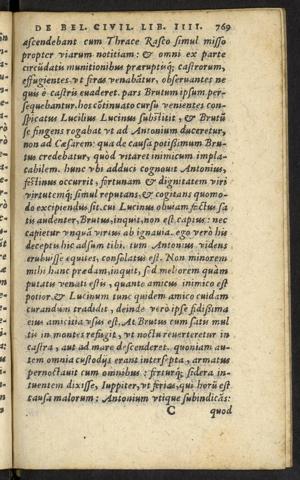 DE BEL. CIVIL. LIB. IIII. 769
ascendebant cum Thrace Rasco simul misso
propter viarum notitiam: & omni ex parte
circūdatis munitionibus præruptisq; castrorum,
effugientes vt feras venabātur, obseruantes ne
quis è castris euaderet. pars Brutum ipsum per-
sequebantur. hos cōtinuato cursu venientes con-
spicatus Lucilius Lucinus subsistit, & Brutū
se fingens rogabat vt ad Antonium duceretur,
non ad Cæsarem: qua de causa potissimum Bru-
tus credebatur, quòd vitaret inimicum impla-
cabilem. hunc vbi adduci cognouit Antonius,
festinus occurrit, fortunam & dignitatem viri
virtutemq; simul reputans, & cogitans quomo-
do excipiendus sit. cui Lucinus obuiam factus sa
tis audenter, Brutus, inquit, non est captus: nec
capietur vnquā virtus ab ignauia. ego verò his
deceptis hîc adsum tibi. tum Antonius videns
erubuisse equites, consolatus est. Non minorem
mihi hanc prædam, inquit, sed meliorem quàm
putatis venati estis, quanto amicus inimico est
potior. & Lucinum tunc quidem amico cuidam
curandum tradidit, deinde verò ipse fidissima
eius amicitia vsus est. At Brutus cum satis mul
tis in montes refugit, vt noctu reuerteretur in
castra, aut ad mare descenderet. quoniam au-
tem omnia custodijs erant intersepta, armatus
pernoctauit cum omnibus: ferturq; sidera in-
tuentem dixisse, Iuppiter, vt ferias, qui horū est
causa malorum: Antonium vtique subindicās:
C quod